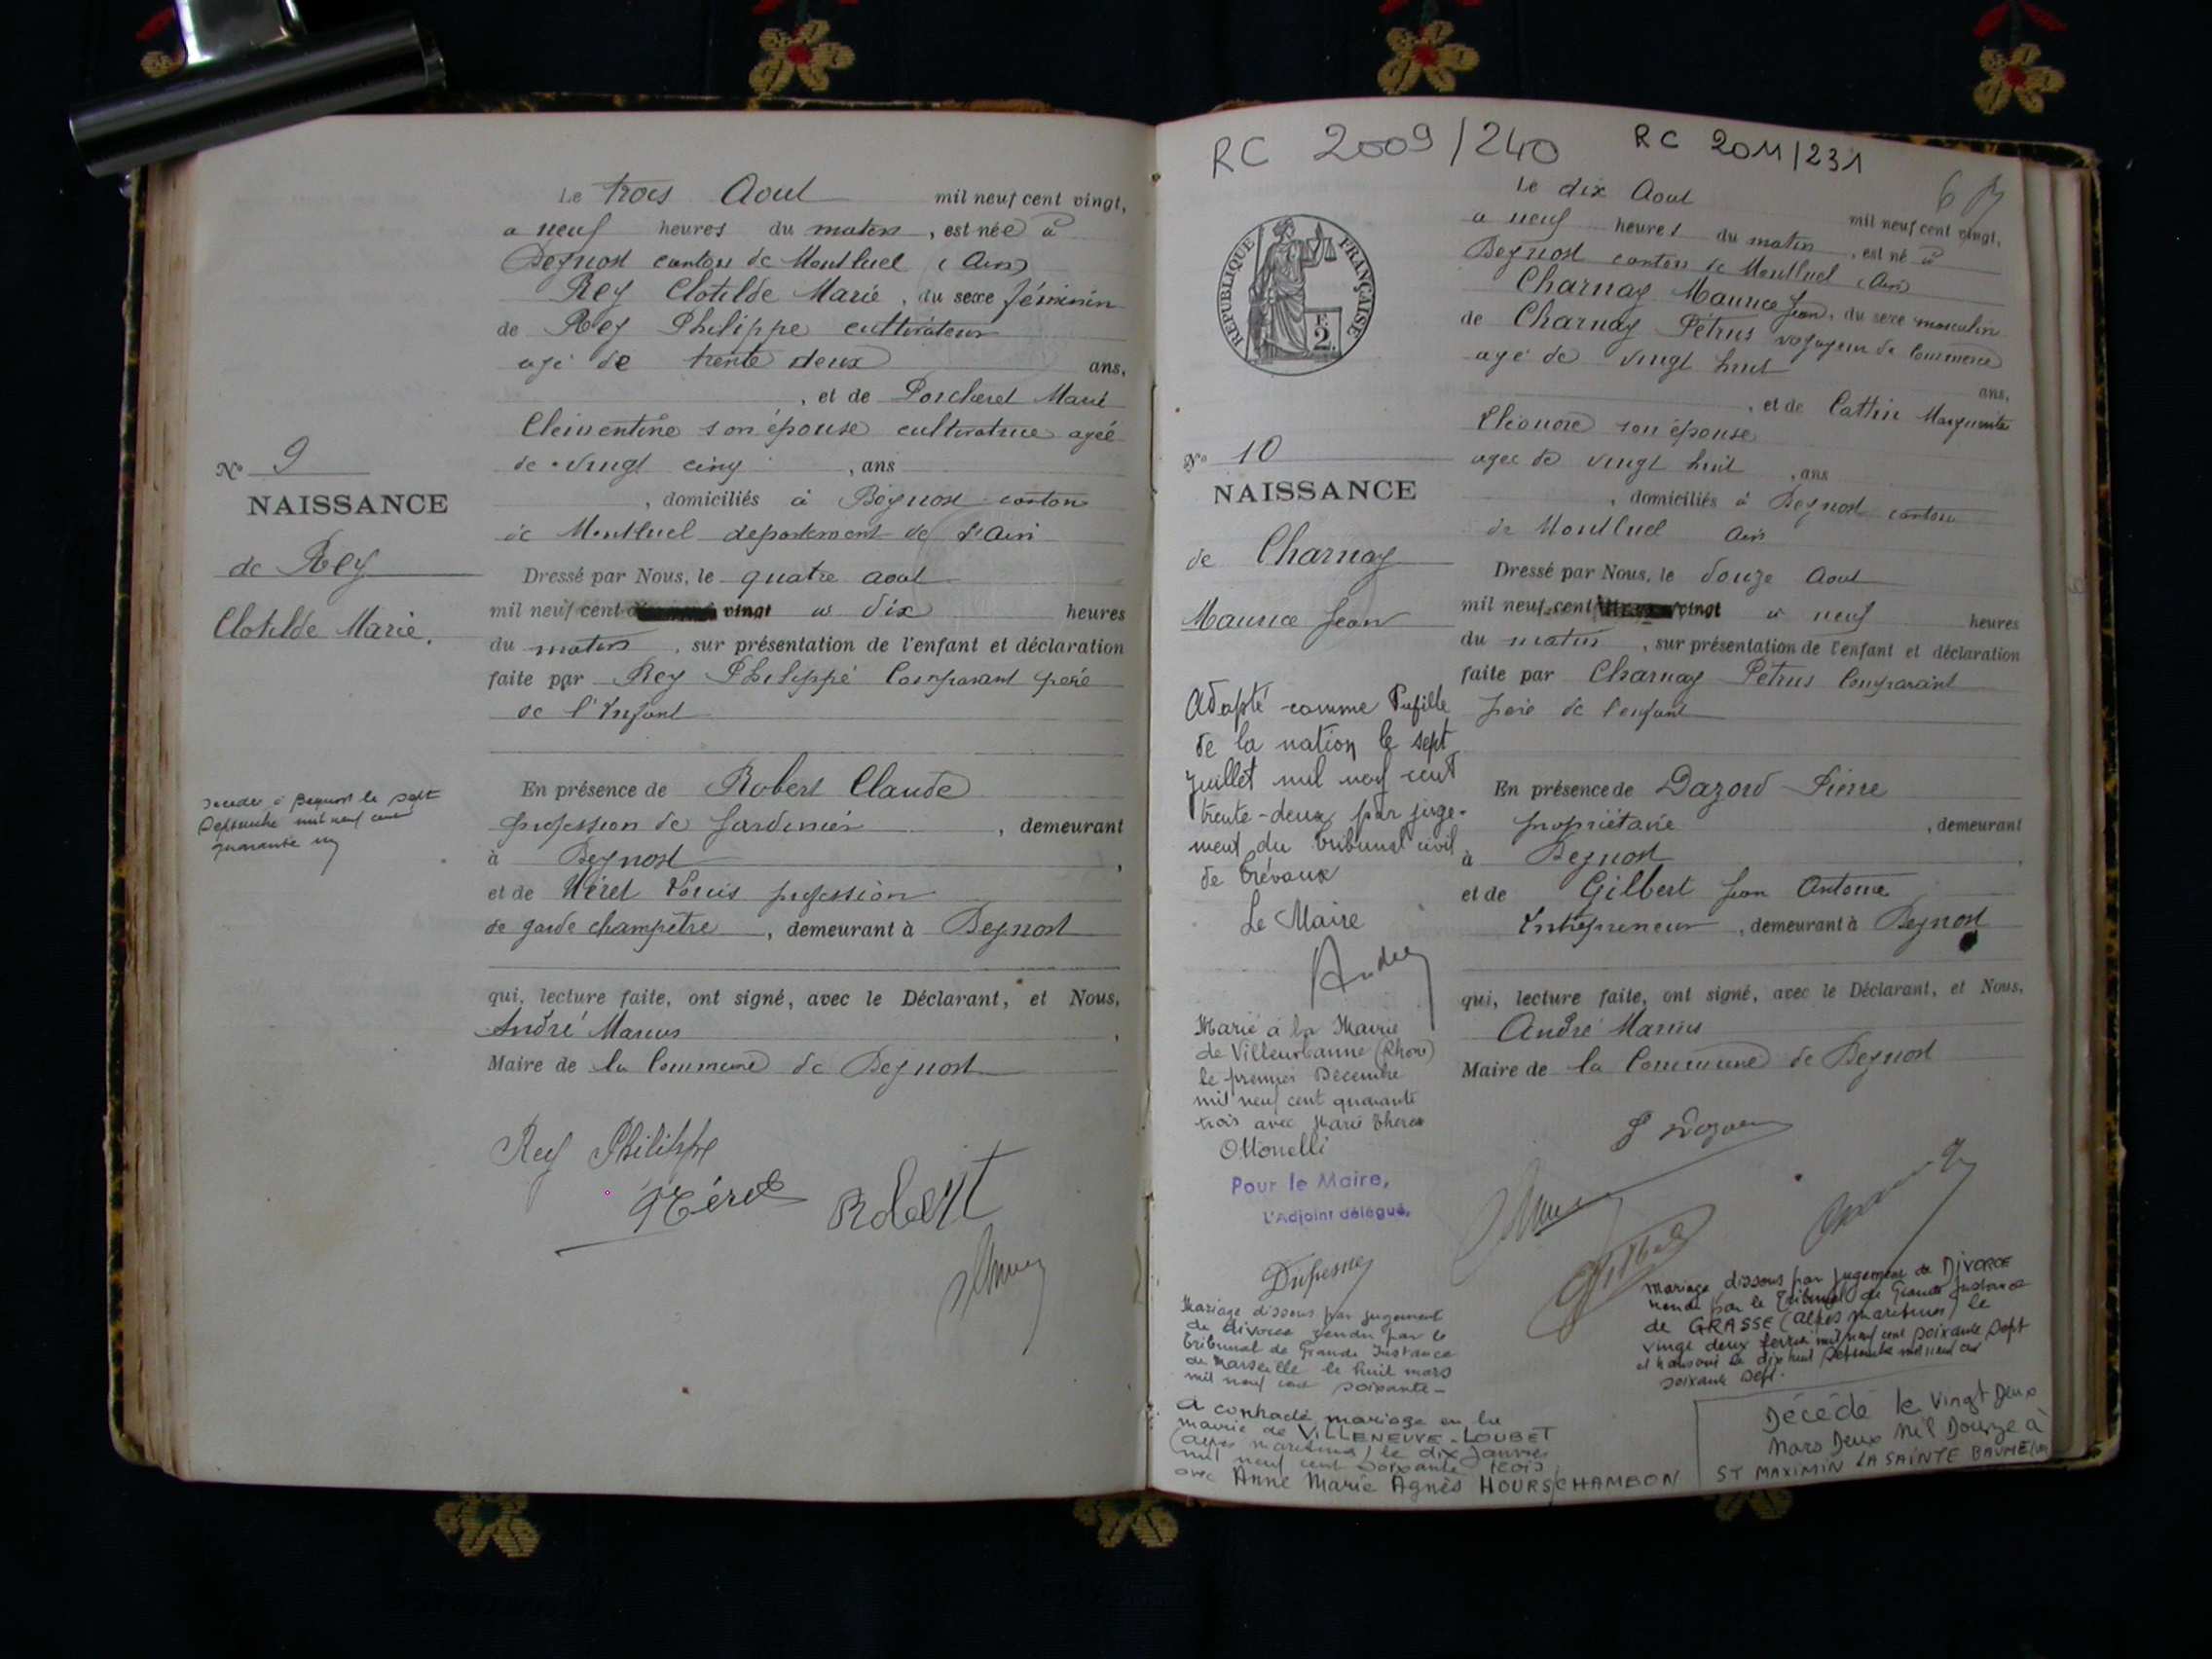 Le trois Aout mil neuf cent vingt,
a neuf heures du matin, est née à
Beynost canton de Montluel (Ain)
Rey Clotilde Marie, du sexe féminin
de Rey Philippe cultivateur
agé de trente deux ans,
, et de Porcheret Marie
Clémentine son épouse cultivatrice agée
de vingt cinq, ans
, domiciliés à Beynost canton
de Montluel departement de l'Ain
N° 9
NAISSANCE
de Rey
Clotilde Marie.
Dressé par Nous, le quatre aout
mil neuf cent vingt à dix heures
du matin, sur présentation de l'enfant et déclaration
faite par Rey Philippe Comparant père
de l'Enfant
décédée à Beynost le sept
Septembre mil neuf cent
quarante un
En présence de Robert Claude
profession de Jardinier, demeurant
à Beynost,
et de Méret Louis profession
de garde champêtre, demeurant à Beynost
qui, lecture faite, ont signé, avec le Déclarant, et Nous,
André Marius,
Maire de la Commune de Beynost
Rey Philippe
Méret Robert
RC 2009/240 RC 2011/231
REPUBLIQUE FRANÇAISE
2
Le dix Aout mil neuf cent vingt,
a neuf heures du matin, est né à
Beynost canton de Montluel (Ain)
Charnay Maurice Jean, du sexe masculin
de Charnay Pétrus voyageur de Commerce
agé de vingt huit ans,
, et de Cattin Marguerite
Eléonore son épouse
agée de vingt huit, ans
, domiciliés à Beynost canton
de Montluel Ain
N° 10
NAISSANCE
de Charnay
Maurice Jean
Dressé par Nous, le douze Aout
mil neuf cent vingt à neuf heures
du matin, sur présentation de l'enfant et déclaration
faite par Charnay Petrus Comparant
père de l'enfant
En présence de Dazord Pierre
propriétaire, demeurant
à Beynost,
et de Gilbert Jean Antoine
Entrepreneur, demeurant à Beynost
qui, lecture faite, ont signé, avec le Déclarant, et Nous,
André Marius
Maire de la Commune de Beynost
Adopté comme Pupille
de la nation le sept
Juillet mil neuf cent
trente-deux par juge-
ment du tribunal civil
de Trévoux
Le Maire
André
Marié à la Mairie
de Villeurbanne (Rhône)
le premier Décembre
mil neuf cent quarante
trois avec Marie Thérèse
Ottonelli
Pour le Maire,
L'Adjoint délégué,
Dufresne
Mariage dissous par jugement
de divorce rendu par le
tribunal de Grande Instance
de Marseille le huit mars
mil neuf cent soixante-
A contracté mariage en la
mairie de VILLENEUVE-LOUBET
(alpes maritimes) le dix janvier
mil neuf cent soixante trois
avec Anne Marie Agnès HOURS/CHAMBON
Mariage dissous par Jugement de DIVORCE
rendu par le Tribunal de Grande Instance
de GRASSE (alpes maritimes) le
vingt deux fevrier mil neuf cent soixante sept
et transcrit le dix huit Septembre mil neuf cent
soixante sept.
Décédé le Vingt Deux
Mars Deux Mil Douze à
ST MAXIMIN LA SAINTE BAUME (Var)